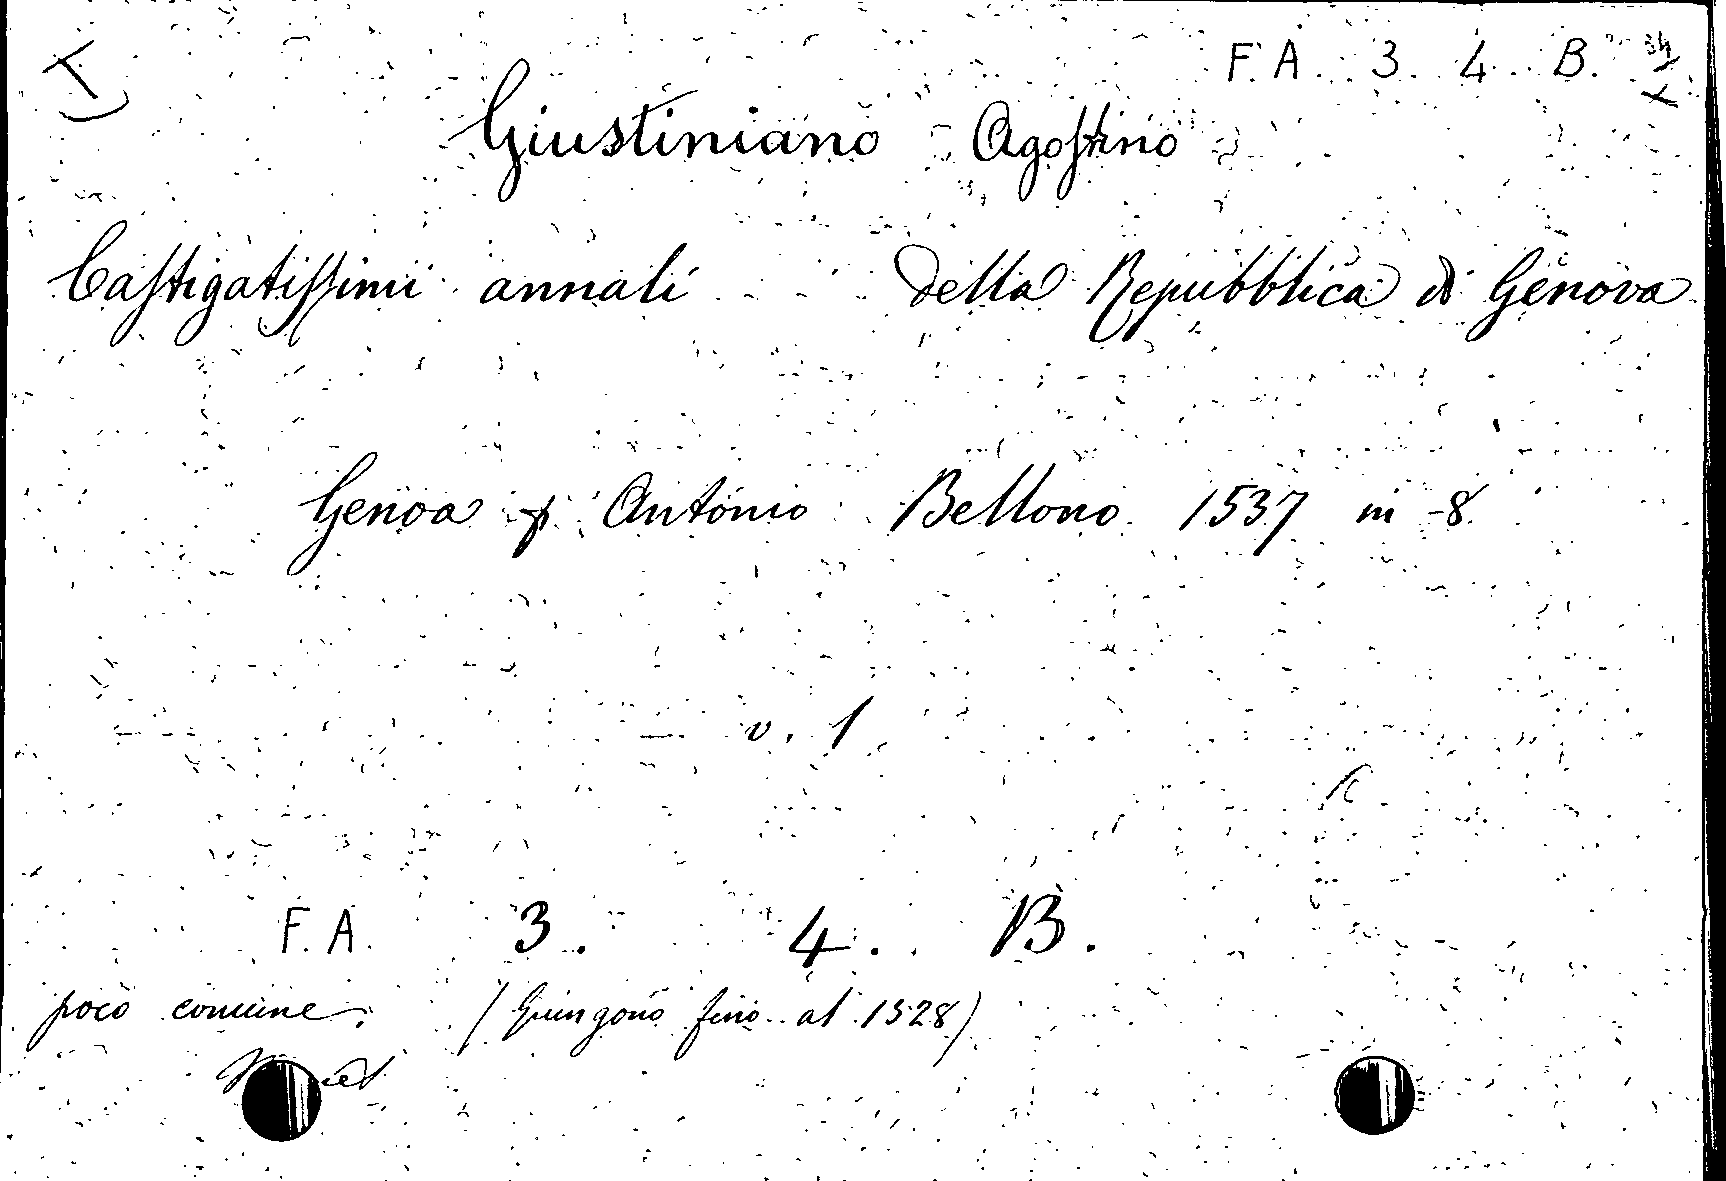 F. A. 3. 4. B.
Giustiniano Agostino
Castigatissimi annali .... della Repubblica di Genova
Genoa p Antonio Bellono 1537 in-8
v. 1
F. A. 3. 4. B.
poco comune. (Giungono fino al 1528)